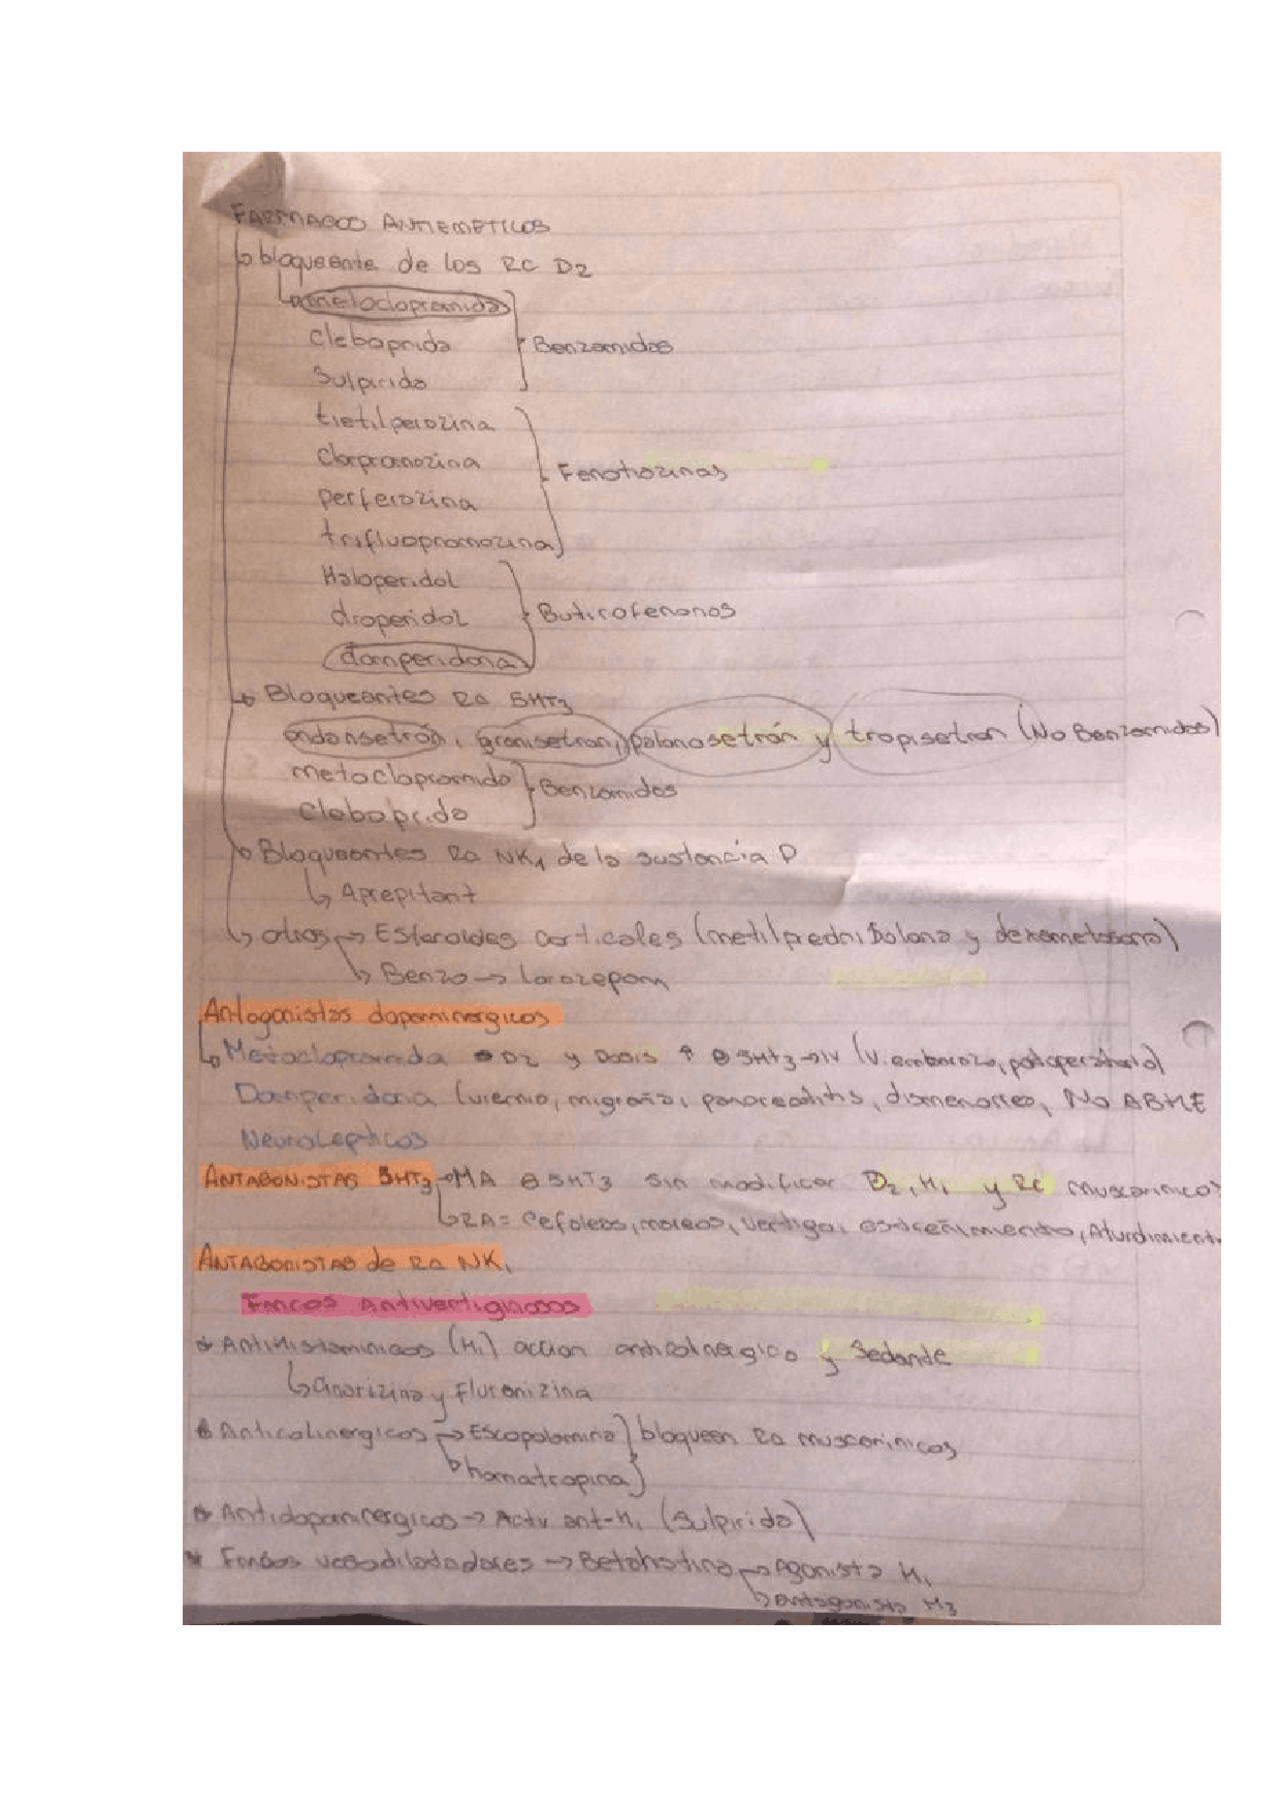 FARMACOS ANTIEMETICOS
↳ bloqueante de los RC D2
↳ metoclopramida
Cleboprida } Benzamidas
Sulpirida
tietilperazina
Clorpromazina } Fenotiazinas
perferazina
trifluopromazina
Haloperidol
droperidol } Butirofenonas
domperidona
↳ Bloqueantes Ra 5HT3
ondansetrón, granisetron, palonosetrón y tropisetron (No Benzamidas)
metoclopramida } Benzamidas
Cleboprida
↳ Bloqueantes Ra NK1 de la sustancia P
↳ Aprepitant
↳ otros → Esteroides corticales (metilprednisolona y dexametasona)
↳ Benzo → lorazepam
Antagonistas dopaminergicos
↳ Metoclopramida D2 y Dosis ↑ ⊖ 5Ht3 → IV (V. embarazo, postoperatorio)
Domperidona (uremia, migraña, pancreatitis, dismenorrea, No ABHE
Neurolepticos
ANTAGONISTAS 5HT3 → MA ⊖ 5HT3 sin modificar D2, H1 y RC muscarinicos
↳ RA = Cefaleas, mareos, vertigo, estreñimiento, Aturdimient.
ANTAGONISTAS de Ra NK1
Farcos Antivertiginosos
* AntiHistaminicos (H1) accion anticolinergico y Sedante
↳ Cinarizina y Flunarizina
* Anticolinergicos → Escopolamina } bloqueen Ra muscarinicos
↳ homatropina
* Antidopaminergicos → Activ ant-H1 (Sulpirida)
* Farcos vasodilatadores → Betahistina → Agonista H1
↳ antagonista H3